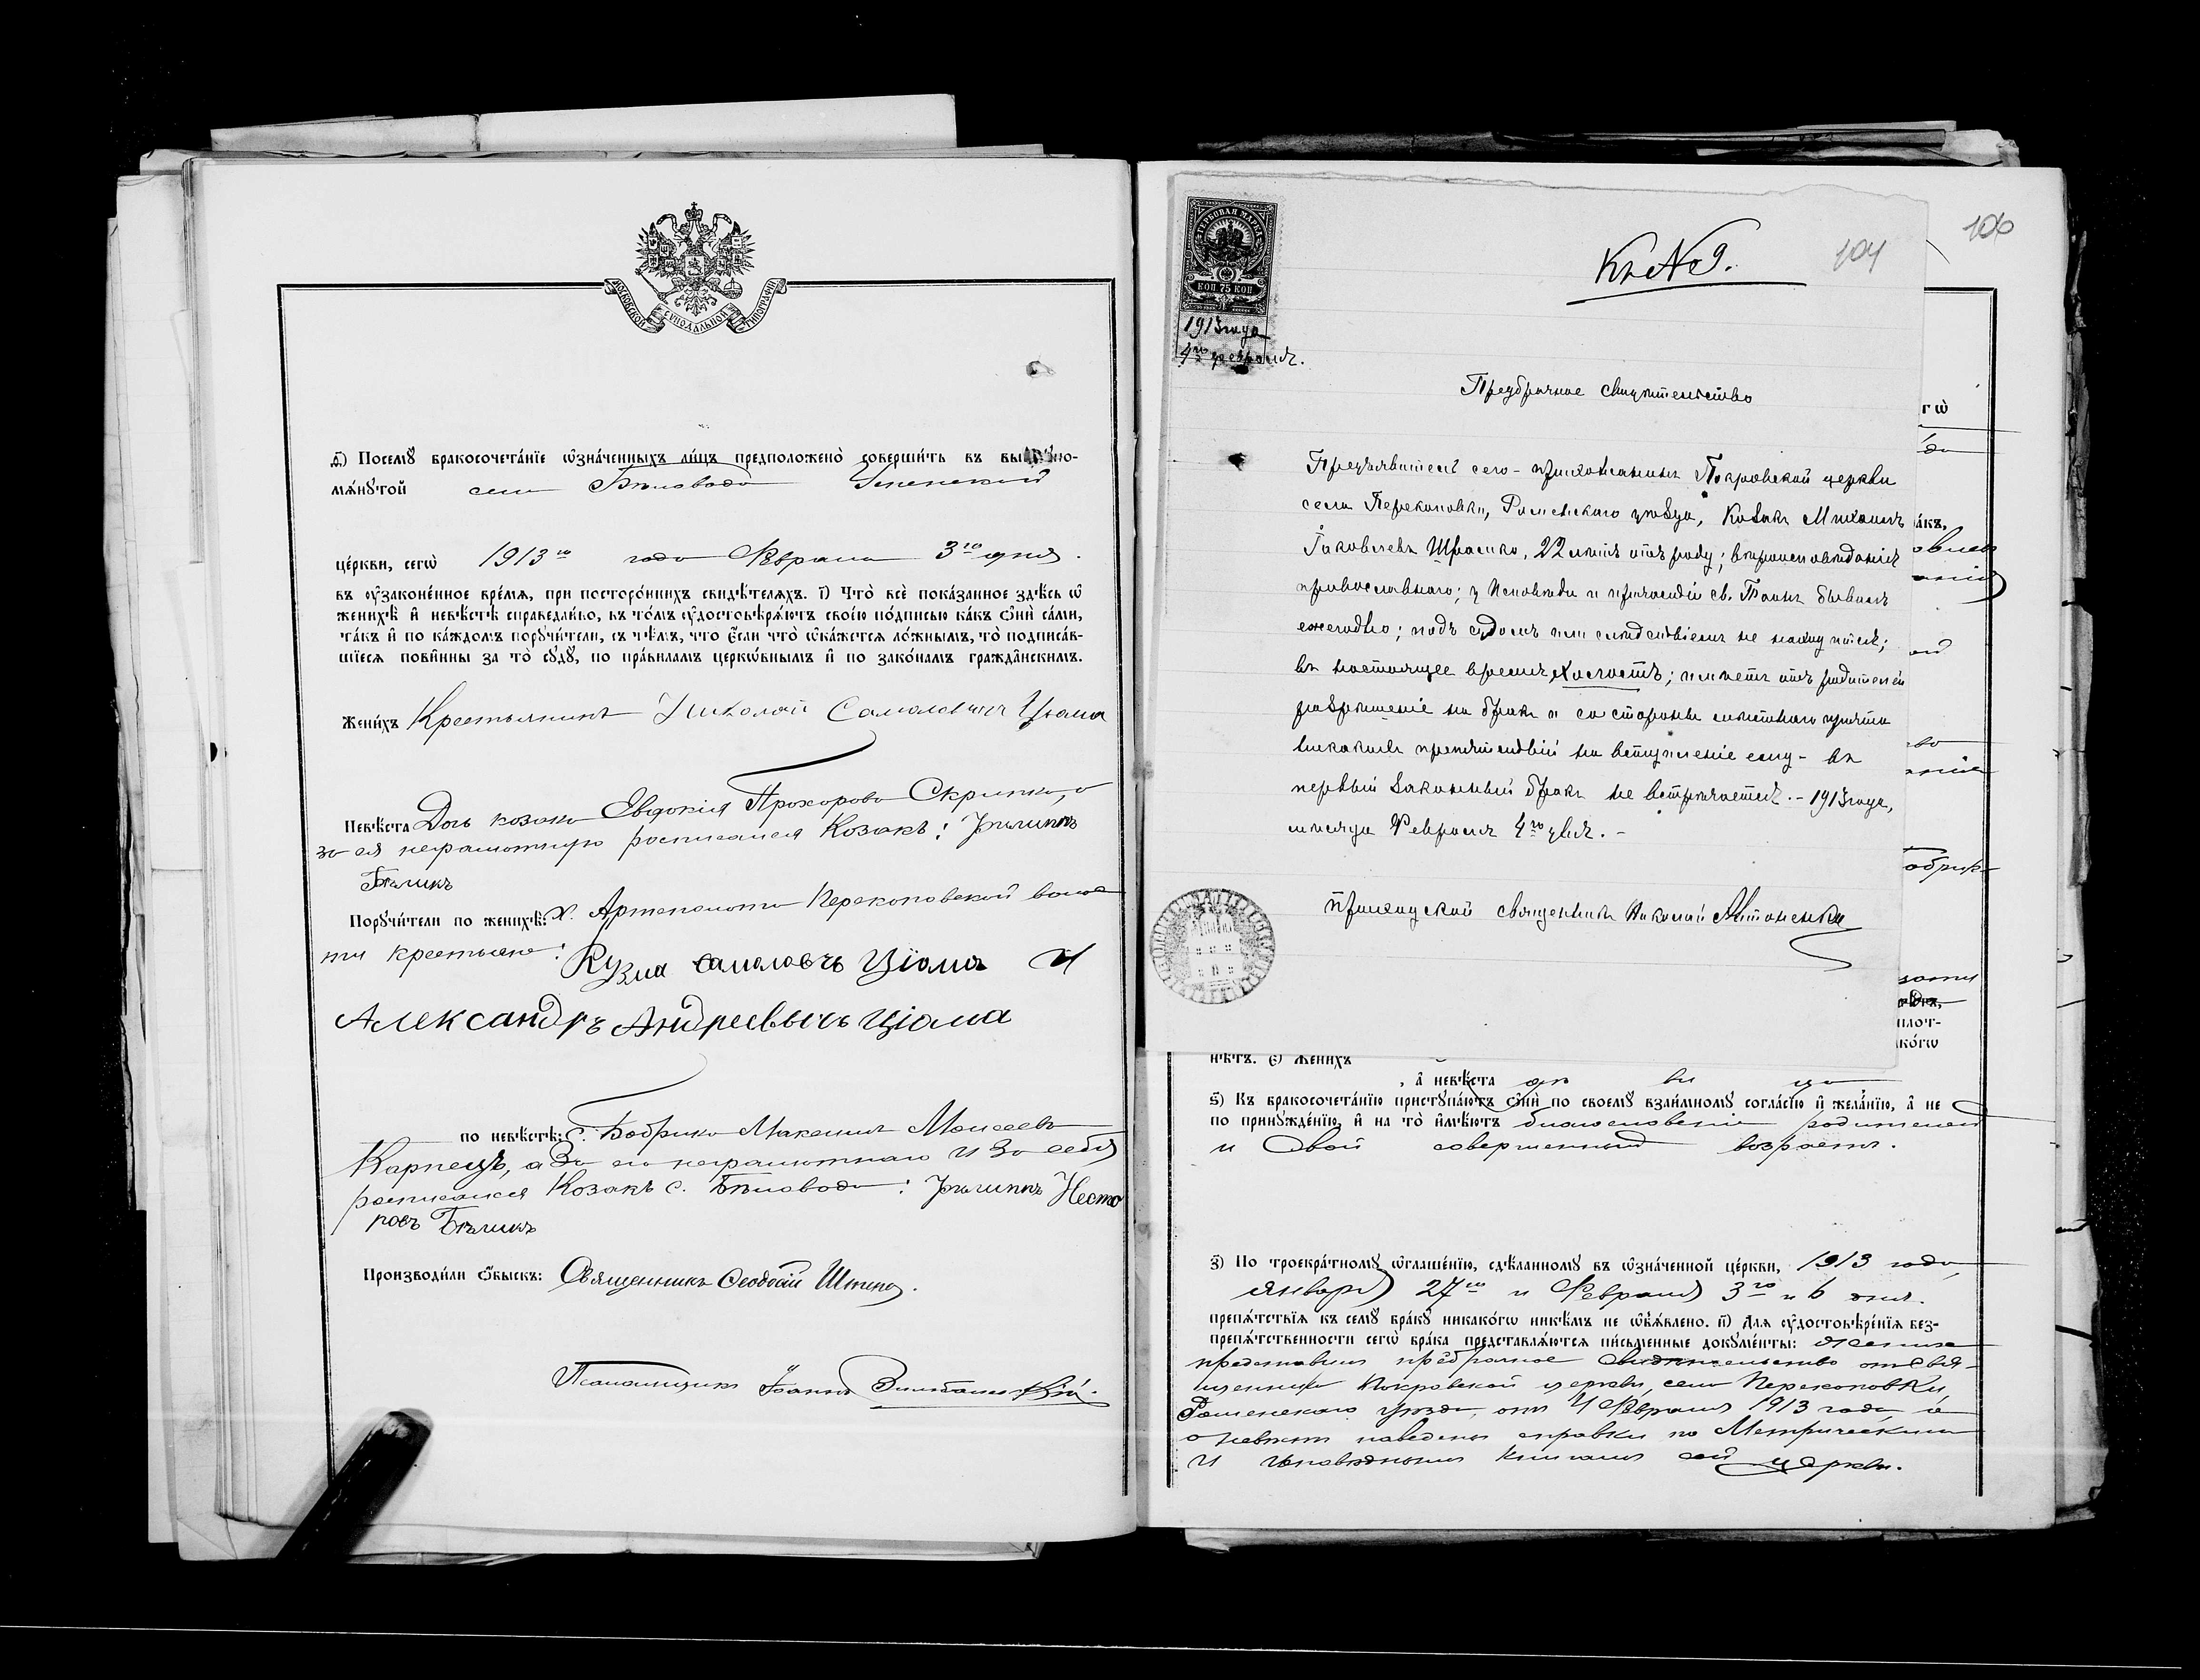 МОСКОВСКОЙ СѴНОДАЛЬНОЙ ТИПОГРАФІИ
д҃) Посемꙋ бракосочета́нїе ѡ҆зна́ченныхъ ли́цъ предположено̀ соверши́ть въ
мѧ́нꙋтой села Бѣловода Успенской
це́ркви, сегѡ̀ 1913го года Февраля 3го дня.
въ ᲂу҆законе́нное вре́мѧ, при посторо́ннихъ свидѣ́телѧхъ. і҃) Что̀ всѐ пока́занное здѣ́сь ѡ҆
женихѣ̀ и҆ невѣ́стѣ справедли́во, въ то́мъ ᲂу҆достовѣрѧ́ютъ свое́ю по́дписью ка́къ ѻ҆нѝ са́ми,
та́къ и҆ по ка́ждомъ порꙋчи́тели, съ тѣ́мъ, что є҆́сли что̀ ѡ҆ка́жетсѧ ло́жнымъ, то̀ подписа́в-
шїесѧ пови́нны за то̀ сꙋдꙋ̀, по пра́виламъ церко́внымъ и҆ по зако́намъ гражда́нскимъ.
Жени́хъ Крестьянинъ Николай Самойловъ Цюма
Невѣ́ста Дочь козака Евдокія Прохорова Скрипка, а
за ея неграмотную росписался Козакъ: Филиппъ
Бѣликъ
Порꙋчи́тели по женихѣ̀: х. Артеполота Перекоповской волос
ти крестьяне: Кузма Самоловъ Цiома И
Александръ Андреевычъ Цiома
по невѣ́стѣ: с. Бобрика Максимъ Моисеевъ
Карпецъ, а За его неграмотнаго и За себя
росписался Козакъ с. Бѣловода: Филиппъ Несто
ровъ Бѣликъ
Производи́ли ѻ҆́быскъ: Священникъ Ѳеодосій
Псаломщикъ Іоаннъ
ГЕРБОВАЯ МАРКА
КОП 75 КОП
1913 года
4го февраля.
Къ № 9.
104
106
Предбрачное свидѣтельство
Предъявитель сего - прихожанинъ Покровской церкви
села Перекоповки, Роменскаго уѣзда, Козакъ Михаилъ
Іаковлевъ 22 лѣтъ отъ роду; вѣроисповѣданія
православнаго; у Исповѣди и причастія св. Таинъ бывалъ
ежегодно; подъ судомъ или слѣдствіемъ не находится;
въ настоящее время холостъ; имѣетъ отъ родителей
разрѣшеніе на бракъ и со стороны мѣстнаго причта
никакихъ препятствій на вступленіе ему - въ
первый законный бракъ не встрѣчается. - 1913 года,
мѣсяца Февраля 4го дня. -
Приходской священникъ Николай
нѣ́тъ. є҃) Жени́хъ
, а҆ невѣ́ста дѣ ви ца
ѕ҃) Къ бракосочета́нїю пристꙋпа́ютъ ѻ҆нѝ по своемꙋ̀ взаи́мномꙋ согла́сїю и҆ жела́нїю, а҆ не
по принꙋжде́нїю, и҆ на то̀ и҆мѣ́ютъ благословеніе родителей
и Свой совершенный возрастъ.
з҃) По троекра́тномꙋ ѡ҆глаше́нїю, сдѣ́ланномꙋ въ ѡ҆зна́ченной це́ркви, 1913 года,
Января 27го и Февраля 3го и 6 дня.
препѧ́тствїѧ къ семꙋ̀ бра́кꙋ никако́гѡ никѣ́мъ не ѡ҆б̾ѧ́влено. и҃) Для ᲂу҆достовѣре́нїѧ без-
препѧ́тственности сегѡ̀ бра́ка представлѧ́ютсѧ пи́сьменные докꙋме́нты: женихъ
представилъ предбрачное Свидѣтельство отъ Свя-
щенника Покровской церкви, села Перекоповки,
Роменскаго уѣзда, отъ 4 Февраля 1913 года, а
о невѣстѣ наведены справки по Метрическимъ
и исповѣднымъ книгамъ сей церкви.